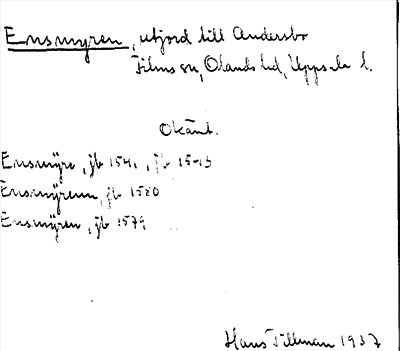 Ensmyren, utjord till Andersbo
Films sn, Olands hd, Uppsala l.
Okänt.
Ensmÿre, jb 1541, jb 1545
Ensmÿrenn, jb 1580
Ensmÿren, jb 1579
Hans Tillman 1937